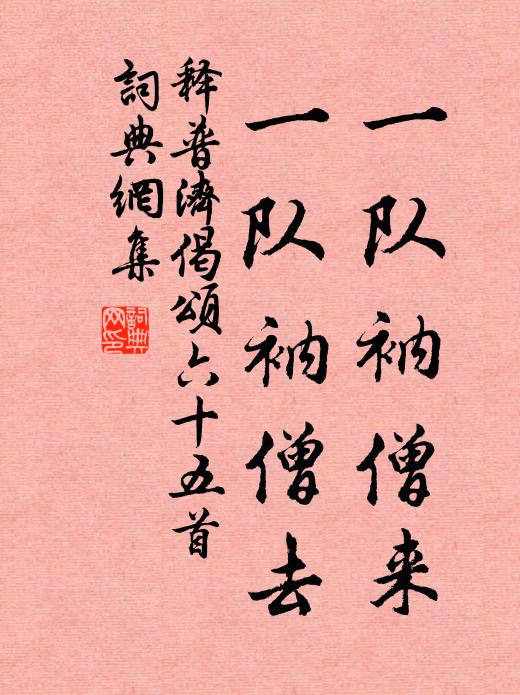 一队衲僧来
一队衲僧去
释普濟偈頌六十五首
詞典網集
詞典網印